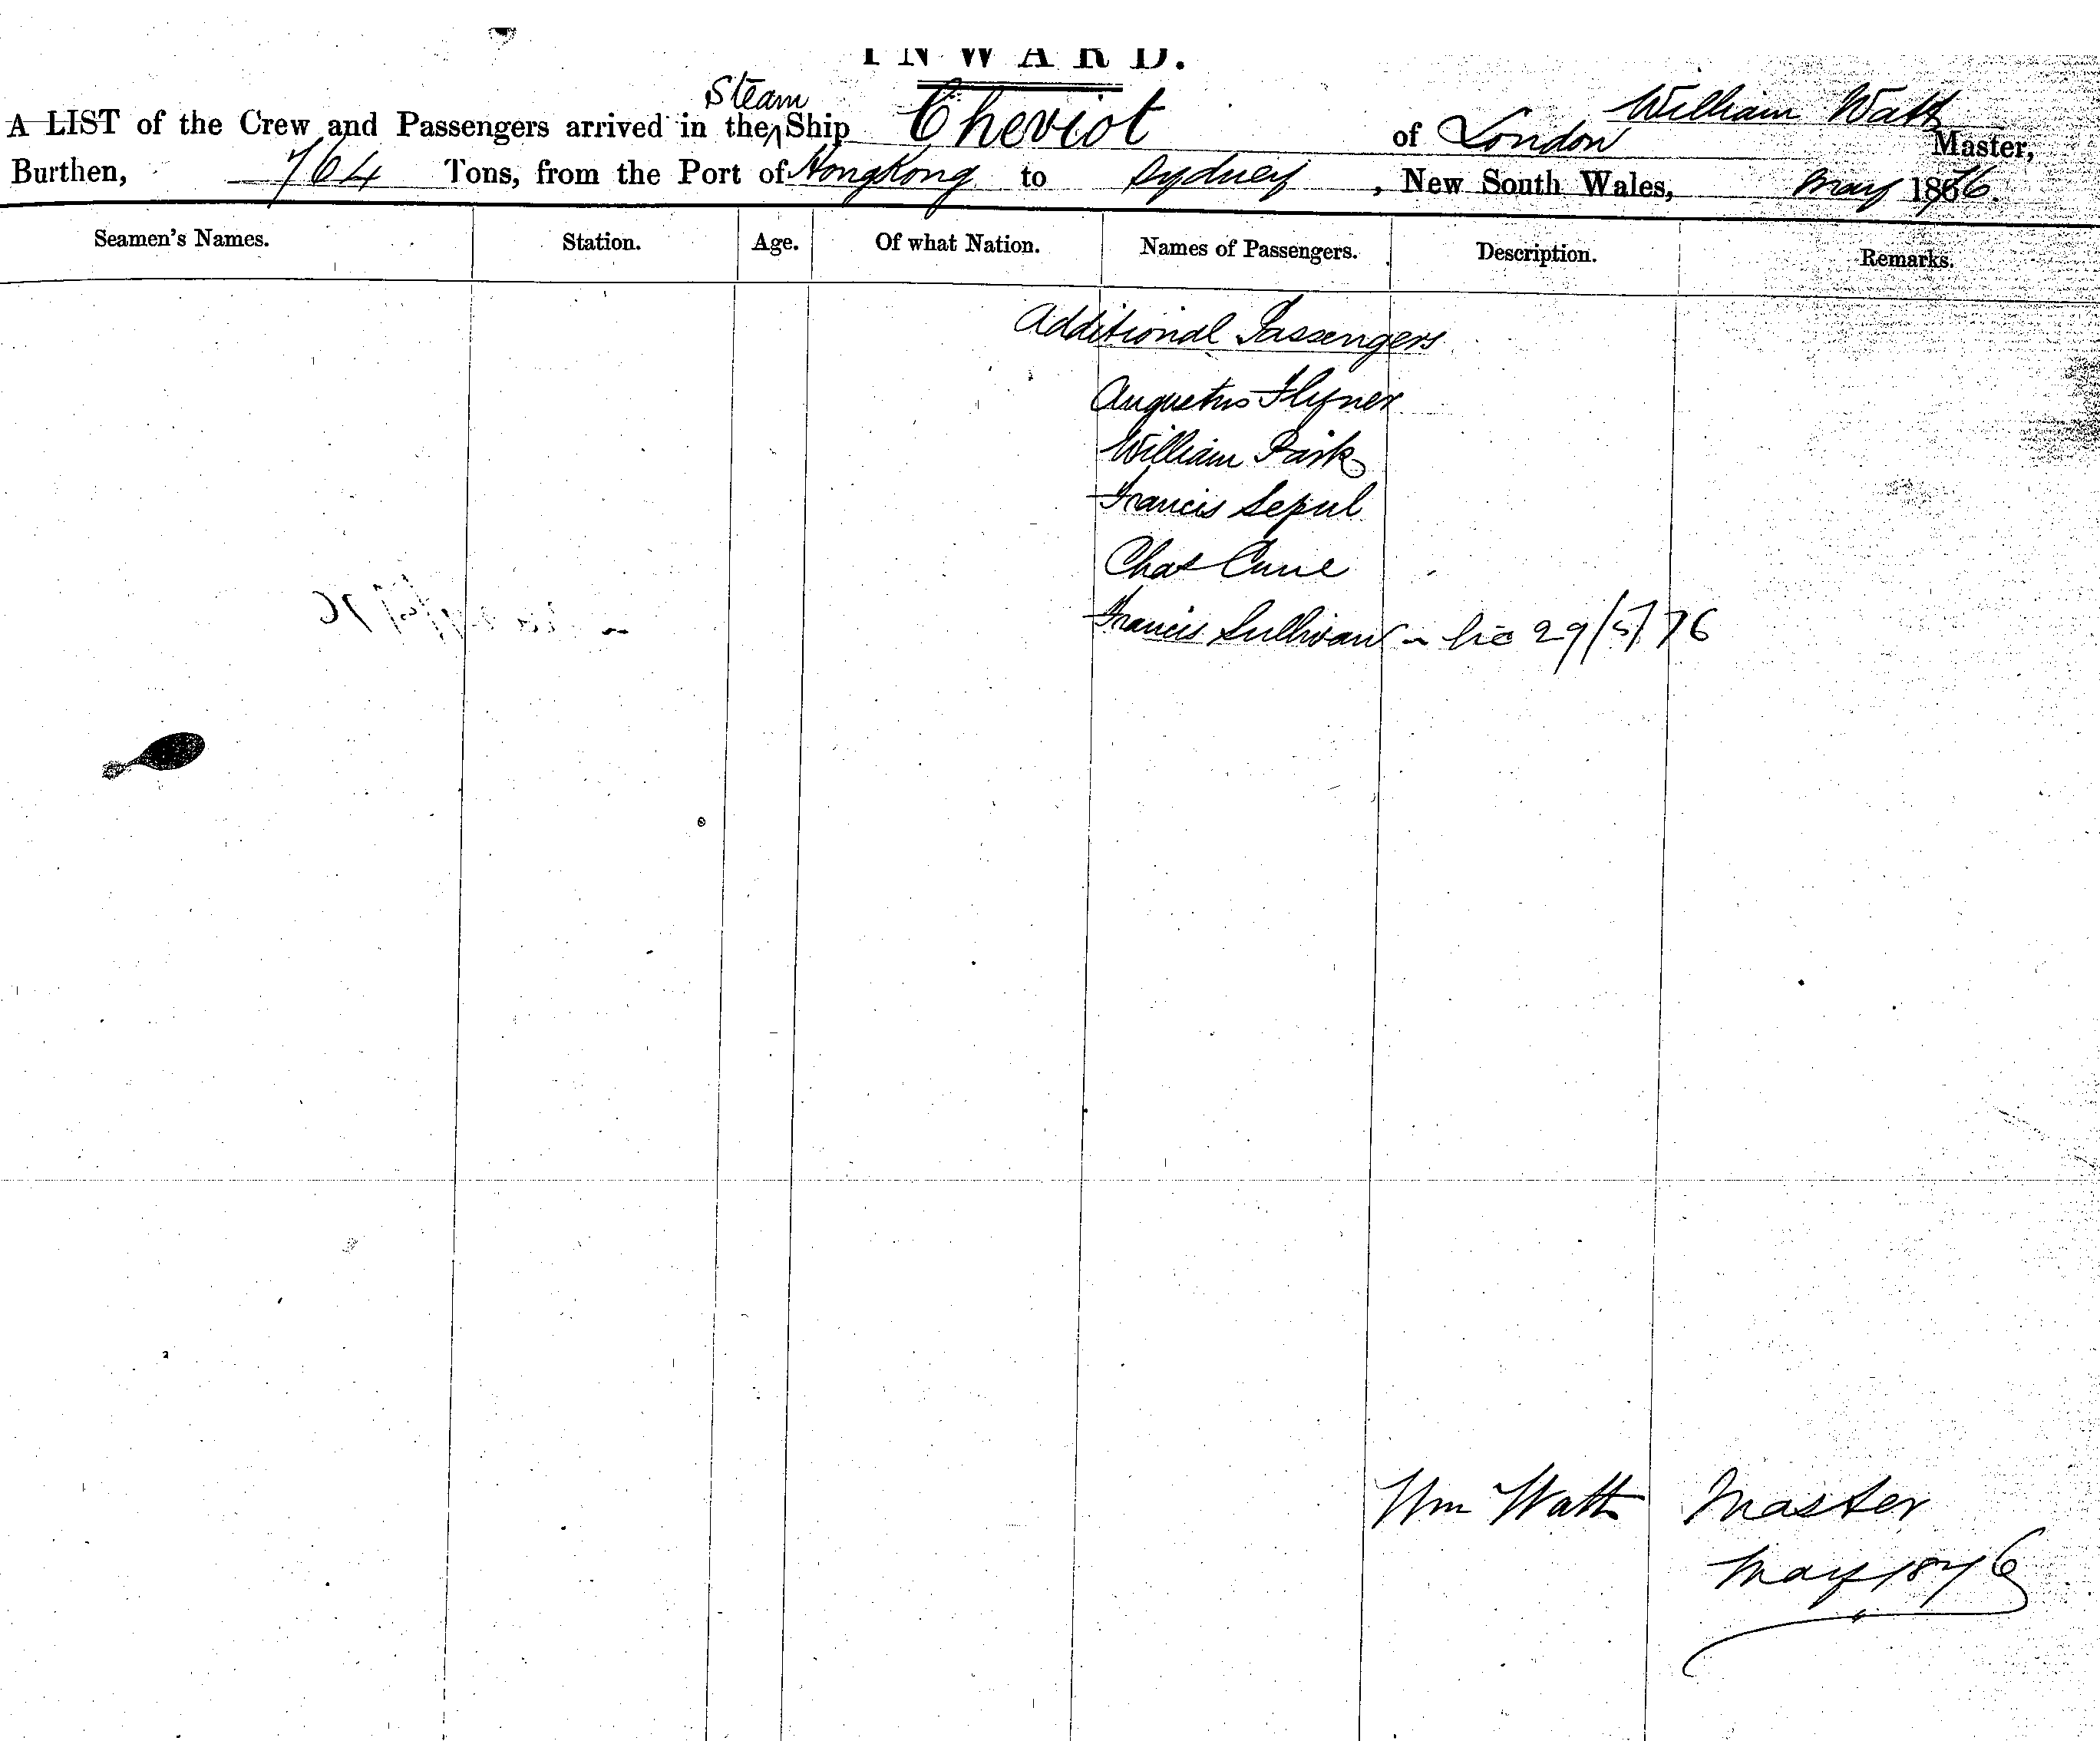 INWARD.
A LIST of the Crew and Passengers arrived in the Steam Ship Cheviot of London William Watt Master,
Burthen, 764 Tons, from the Port of HongKong to Sydney, New South Wales, May 1876.
Seamen's Names. Station. Age. Of what Nation. Names of Passengers. Description. Remarks.
Additional Passengers
Augustus
William Park
Francis Sepul
Chas
Francis Sullivan 29/5/76
Wm Watt Master
May 1876